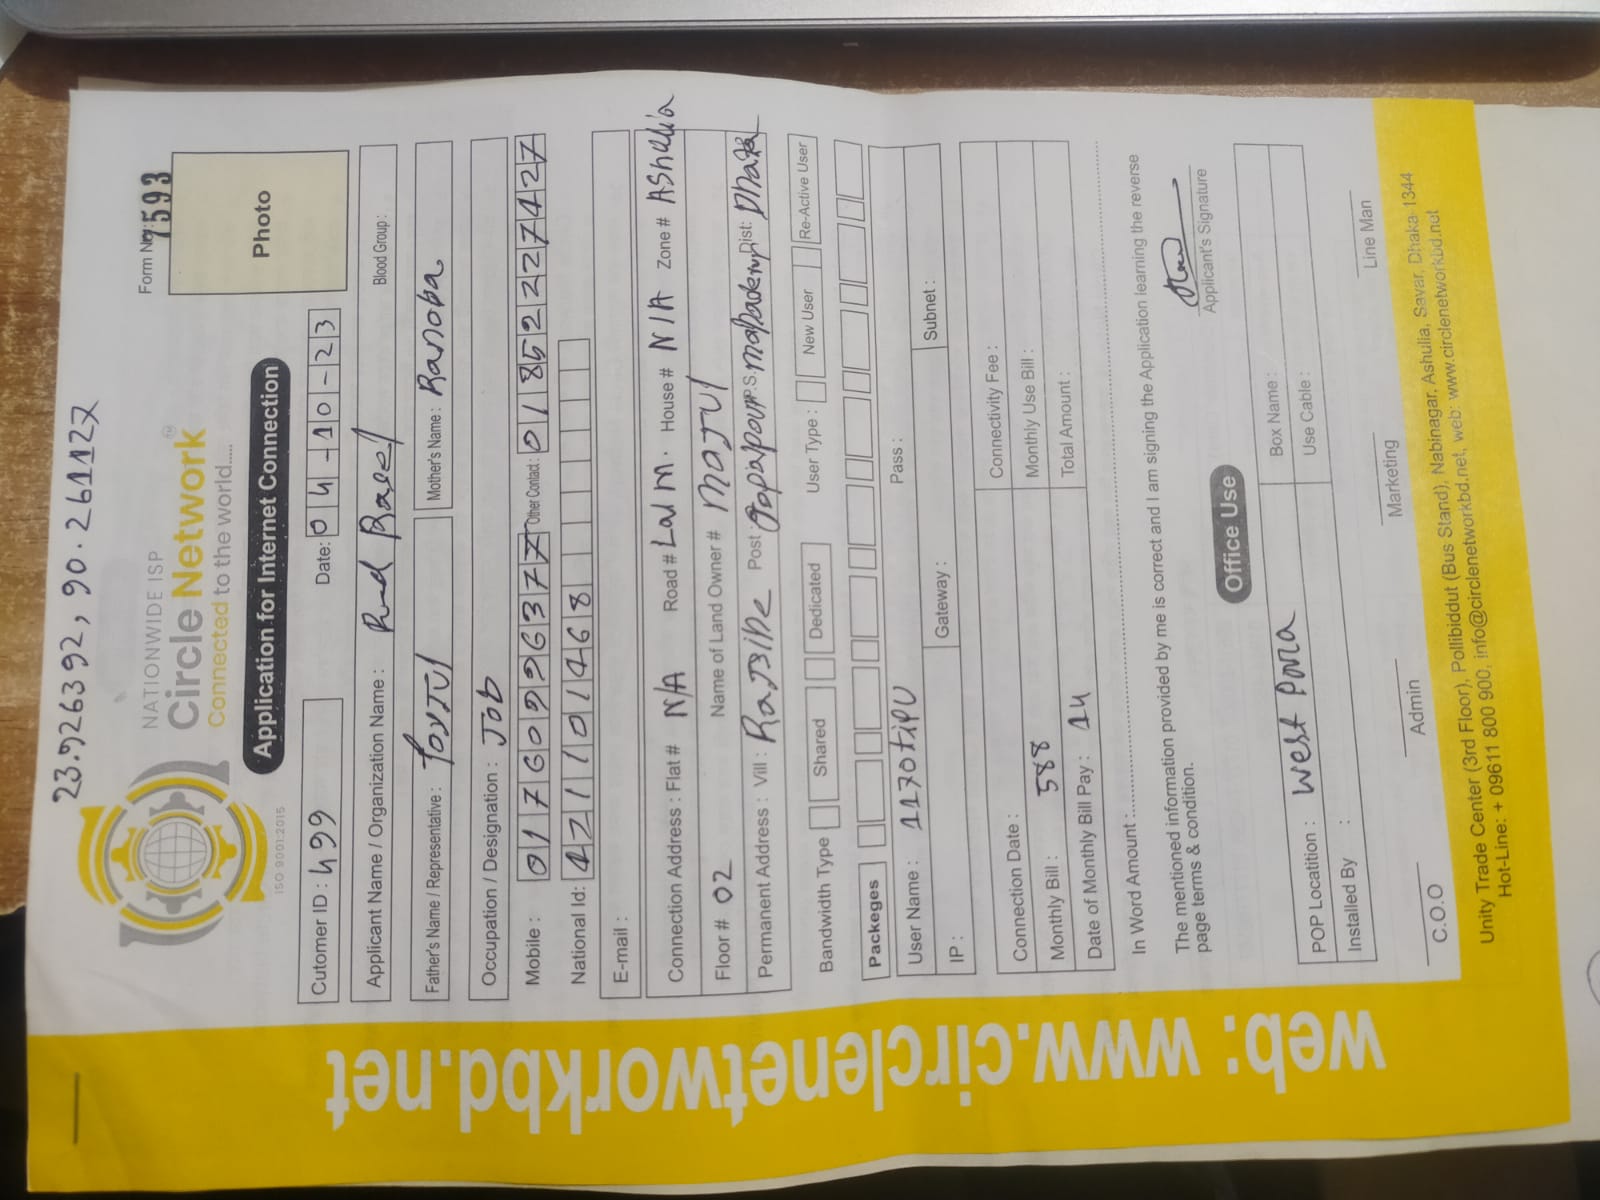 23.926392, 90.261127
NATIONWIDE ISP
Circle Network™
Connected to the world.....
ISO 9001:2015
Form No: 7593
Photo
Application for Internet Connection
Cutomer ID : 499 Date: 04-10-23
Applicant Name / Organization Name : Blood Group :
Father's Name / Representative : Mother's Name : Banoba
Occupation / Designation : Job
Mobile : 01760996377 Other Contact : 01852227427
National Id: 4211101468
E-mail :
Connection Address : Flat # N/A Road # Lal M. House # N/A Zone # Ashulia
Floor # 02 Name of Land Owner #
Permanent Address : Vill : Post : P.S. Dist: Dhaka
Bandwidth Type Shared Dedicated User Type : New User Re-Active User
Packeges
User Name : 1170tipu Pass :
IP : Gateway : Subnet :
Connection Date : Connectivity Fee :
Monthly Bill : 588 Monthly Use Bill :
Date of Monthly Bill Pay : 14 Total Amount :
In Word Amount :
The mentioned information provided by me is correct and I am signing the Application learning the reverse
page terms & condition.
Applicant's Signature
Office Use
POP Locatition : West Para Box Name :
Installed By : Use Cable :
C.O.O Admin Marketing Line Man
Unity Trade Center (3rd Floor), Pollibiddut (Bus Stand), Nabinagar, Ashulia, Savar, Dhaka-1344
Hot-Line: + 09611 800 900, info@circlenetworkbd.net, web: www.circlenetworkbd.net
web: www.circlenetworkbd.net